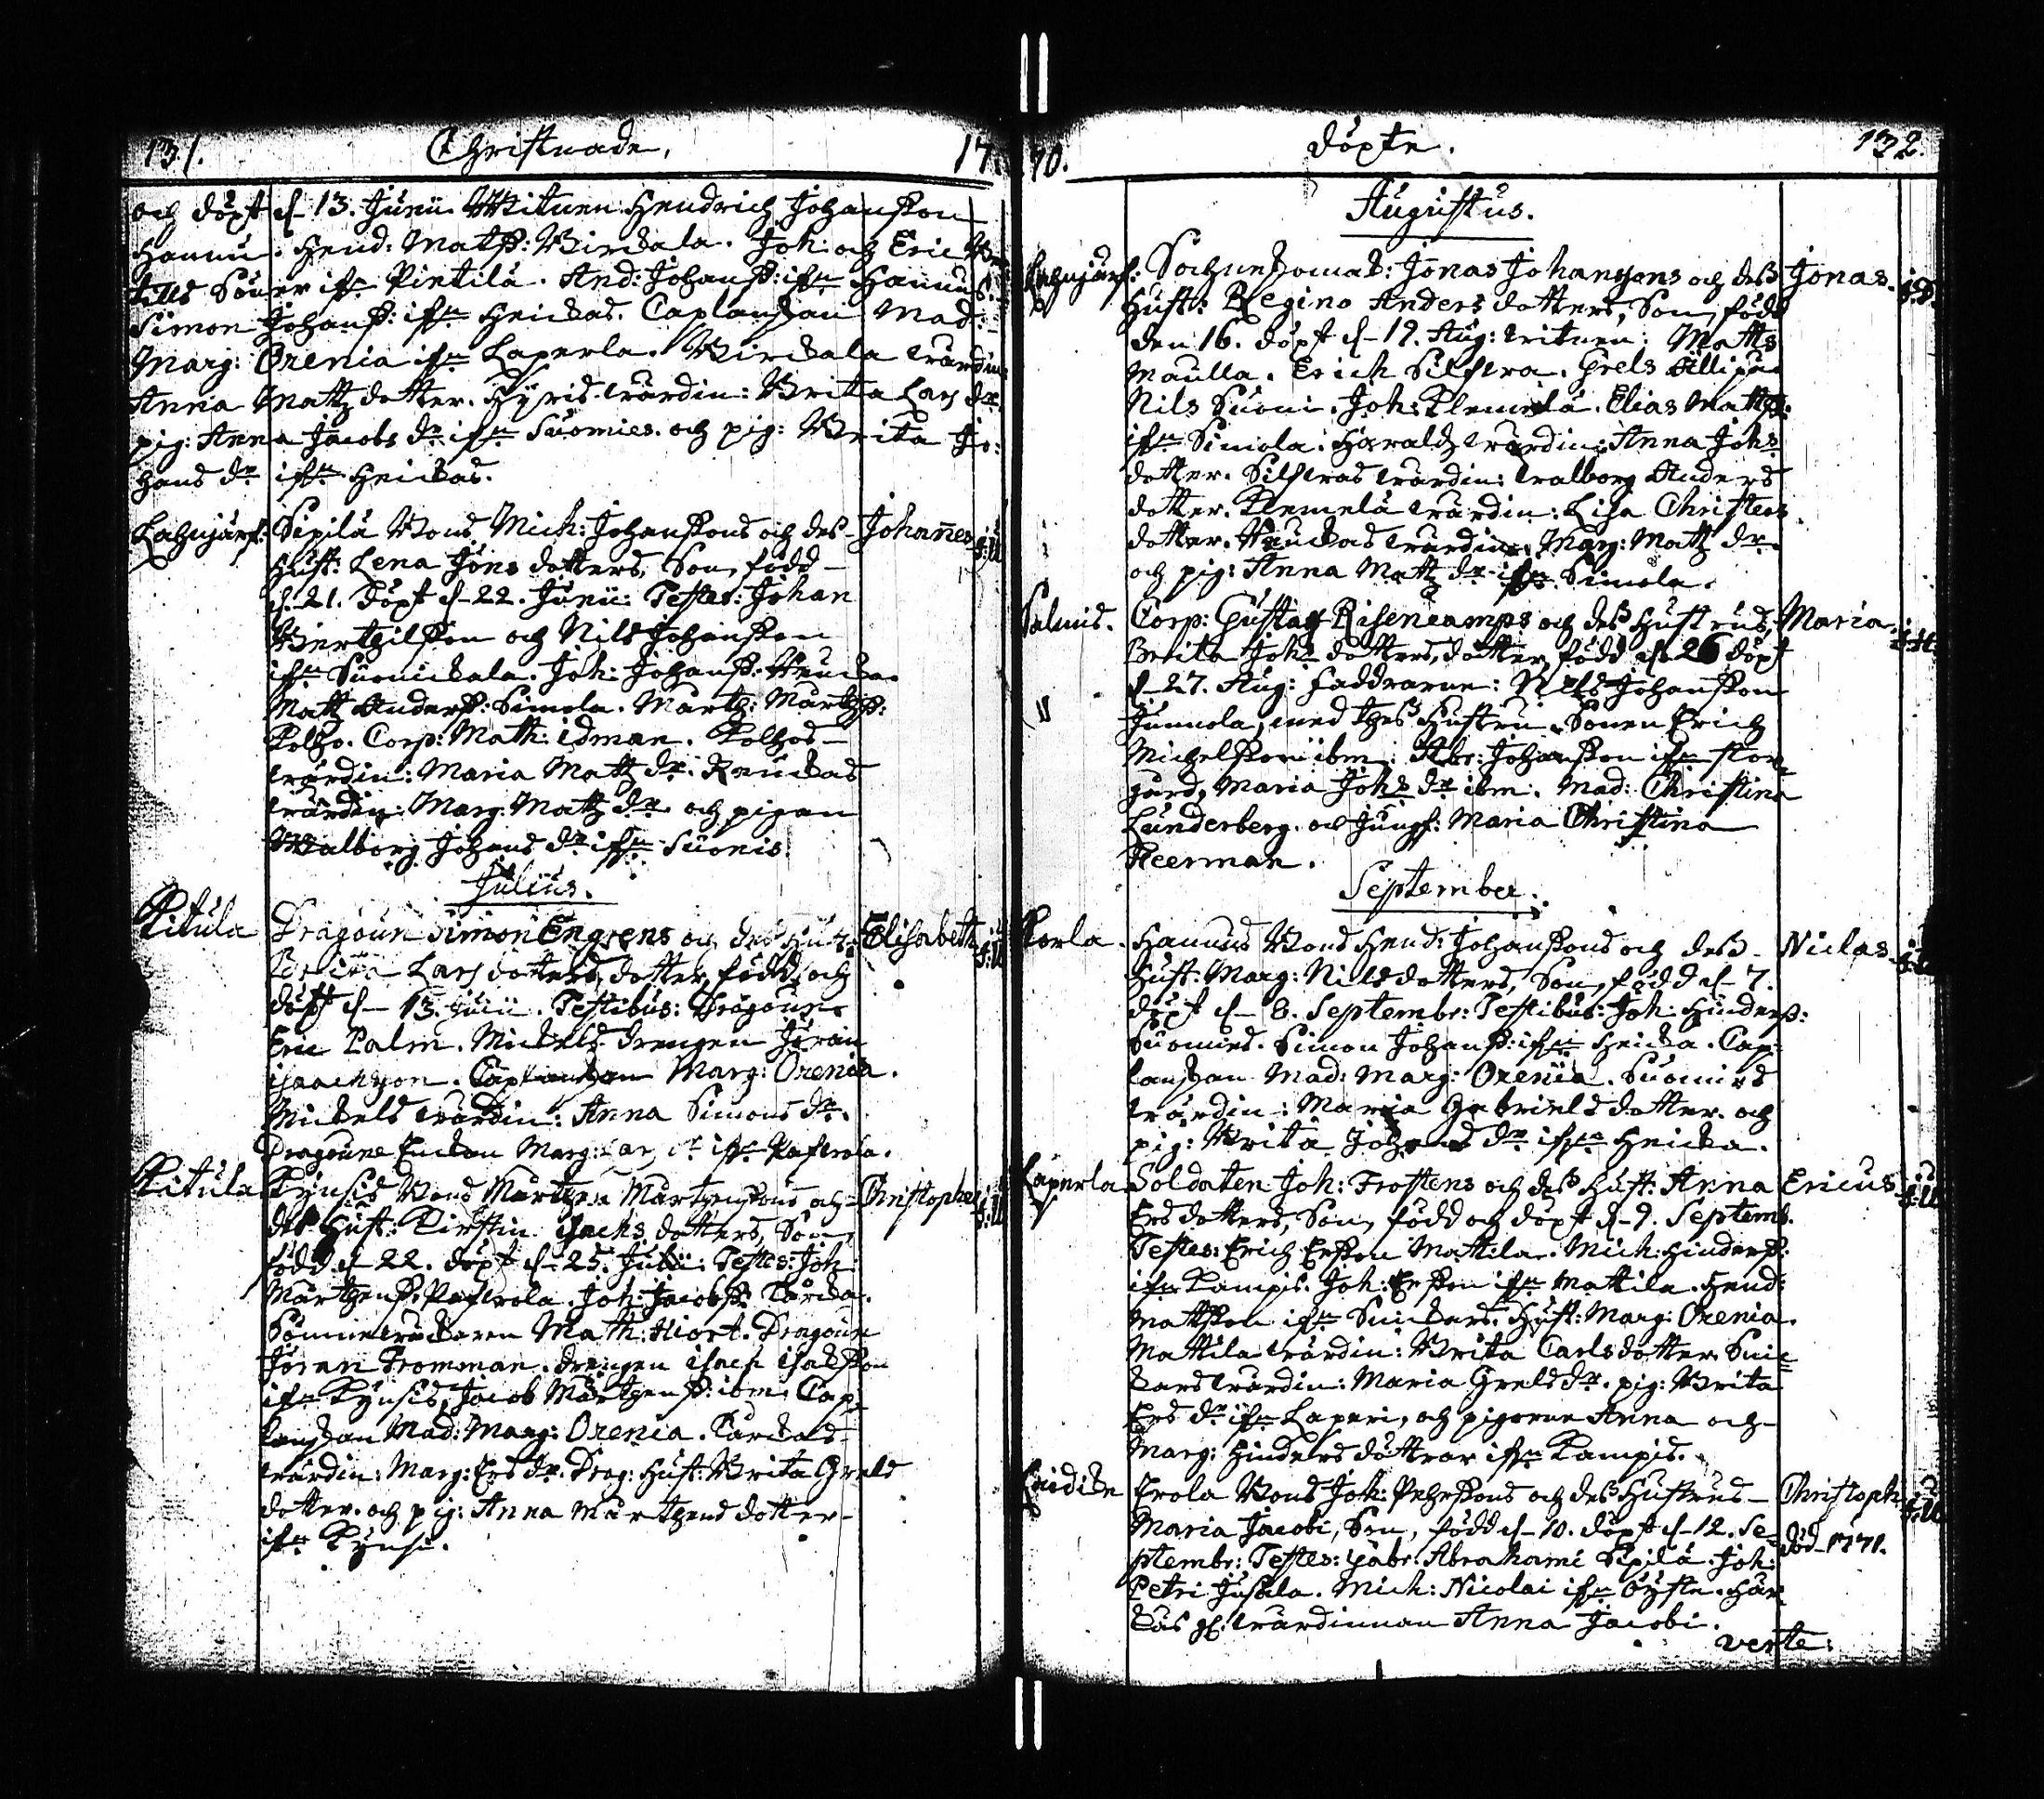 131. Christnade, 17
och döpt d. 13. Junii. Witnen Hendrich Johansson
Hannu. Hend: Matss: Birckala. Joh: och Eric
Söner ifr. Pietilä. And: Johanss: ifrn Hannus.
Simon Johanss: ifrn Heickas. Caplanskan Mad:
Marg: Orenia ifrn Laperla. Birckala wärdin
Anna Matz dotter. Hyris wärdin: Brita Lars dr.
pig: Anna Jacobs dr. ifrn Suomies. och pig: Brita Jo:
hans dr ifrn Heickas.
Lahnjärf: Sepilä Bond. Mich: Johanssons och des Johannes
Hust: Lena Jöns dotters, Son, född
d. 21. döpt d. 22. Junii: Testes: Johan
Bierthilsson och Nils Johansson
ifrn Suonickala. Joh: Johanss: Heucka.
Matz Anderss: Simola. Martz: Martzss:
Kolho. Corp: Math: idman. Kolhos
wärdin: Maria Matz dr. Reuckas
wärdin: Marg: Matz dr. och pigan
Walborg Johans dr ifrn Suonis.
Julius.
Kitula Dragoun Simon Engrens och des Hust: Elisabeth
Lars dotters, dotter, född och
döpt d. 13. Julii. Testibus: Dragoun
Eric Palm. Mickels drengen Jöran
isaachson. Caplanskan Marg: Orenia.
Mickels wärdin: Anna Simons dr.
Dragoune Enckan Marg: Lars dr ifrn Paferola.
Kitula Kynsis Bond Martzen Martzenssons och Christopher
des Hust: Kirstin isachs dotters, Son,
född d. 22. döpt d. 25. Julii: Testes: Joh:
Martzenss: Paferola. Joh: Jacobss: Karcka.
Math: Hiort. Dragoun
Jöran Fromman. drengen isach isaksson
ifrn Kynsis, Jacob Martzenss: ibm. Cap:
lanskan Mad: Marg: Orenia. Karckas
wärdin: Marg: Ers dr. Drag: Hust: Brita Grels
dotter. och pig: Anna Martzens dotter
ifrn Kynsi.
70. döpte. 132.
Augustus.
Lahnjärf: Sochneskomak: Jonas Johanssons och dess Jonas.
Hust: Regina Anders dotters, Son, född
den 16. döpt d. 19. Aug: witnen: Matts
Maulla. Erich Silfvra. Grels
Nils Suoni. Joh: Klemelä. Elias Matss:
ifrn Simola. Haralds wärdin: Anna Johs
dotter. Silfvras wärdin: walborg Anders
dotter. Klemelä wärdin: Lisa Christers
dotter. Heuckas wärdin: Marg: Matz dr.
och pig: Anna Matz dr ifrn Simola.
Salmis. Corp: Gustaf Risencamps och dess Hustrus, Maria.
Brita Johs dotters, dotter, född d. 26 döpt
d. 27. Aug: Faddrarne: Nils Johansson
Junnola, med thess Hustru. Sonen Erich
Michelsson ibm: Abr: Johansson ifrn stor
gård, Maria Johs dr ibm. Mad: Christina
Lunderberg. och Jungf: Maria Christina
Heerman.
September.
Korla. Hannus Bond Hend: Johanssons och dess Niclas.
Hust: Marg: Nilsdotters, Son, född d. 7.
döpt d. 8. Septembr: Testibus: Joh: Hinderss:
Suomies. Simon Johanss: ifrn Heicka. Cap:
lanskan Mad: Marg: Orenia. Suomies
wärdin: Maria Gabriels dotter. och
pig: Brita Johans dr ifrn Heicka.
Laperla Soldaten Joh: Frostens och dess Hust: Anna Ericus
Ersdotters, Son, född och döpt d. 9. Septemb.
Testes: Erich Ersson Mattila. Mich: Hinderss:
ifrn Kampis. Joh: Ersson ifrn Mattila. Hend:
Mattsson ifrn Suickars. Hust: Marg: Orenia.
Mattila wärdin: Brita Carlsdotter. Suic
kars wärdin: Maria Grels dr. pig: Brita
Ers dr ifrn Laperi, och pigorne Anna och
Marg: Hinders döttrar ifrn Kampis.
Erola Bond Joh: Pehrssons och dess Hustrus Christoph
Maria Jacobi, Son, född d. 10. döpt d. 12. Se död 1771.
ptembr: Testes: Gabr: Abrahami Sipilä. Joh:
Petri Jusela. Mich: Nicolai ifrn Öyste. Har
kas gl: wärdinnan Anna Jacobi.
verte: